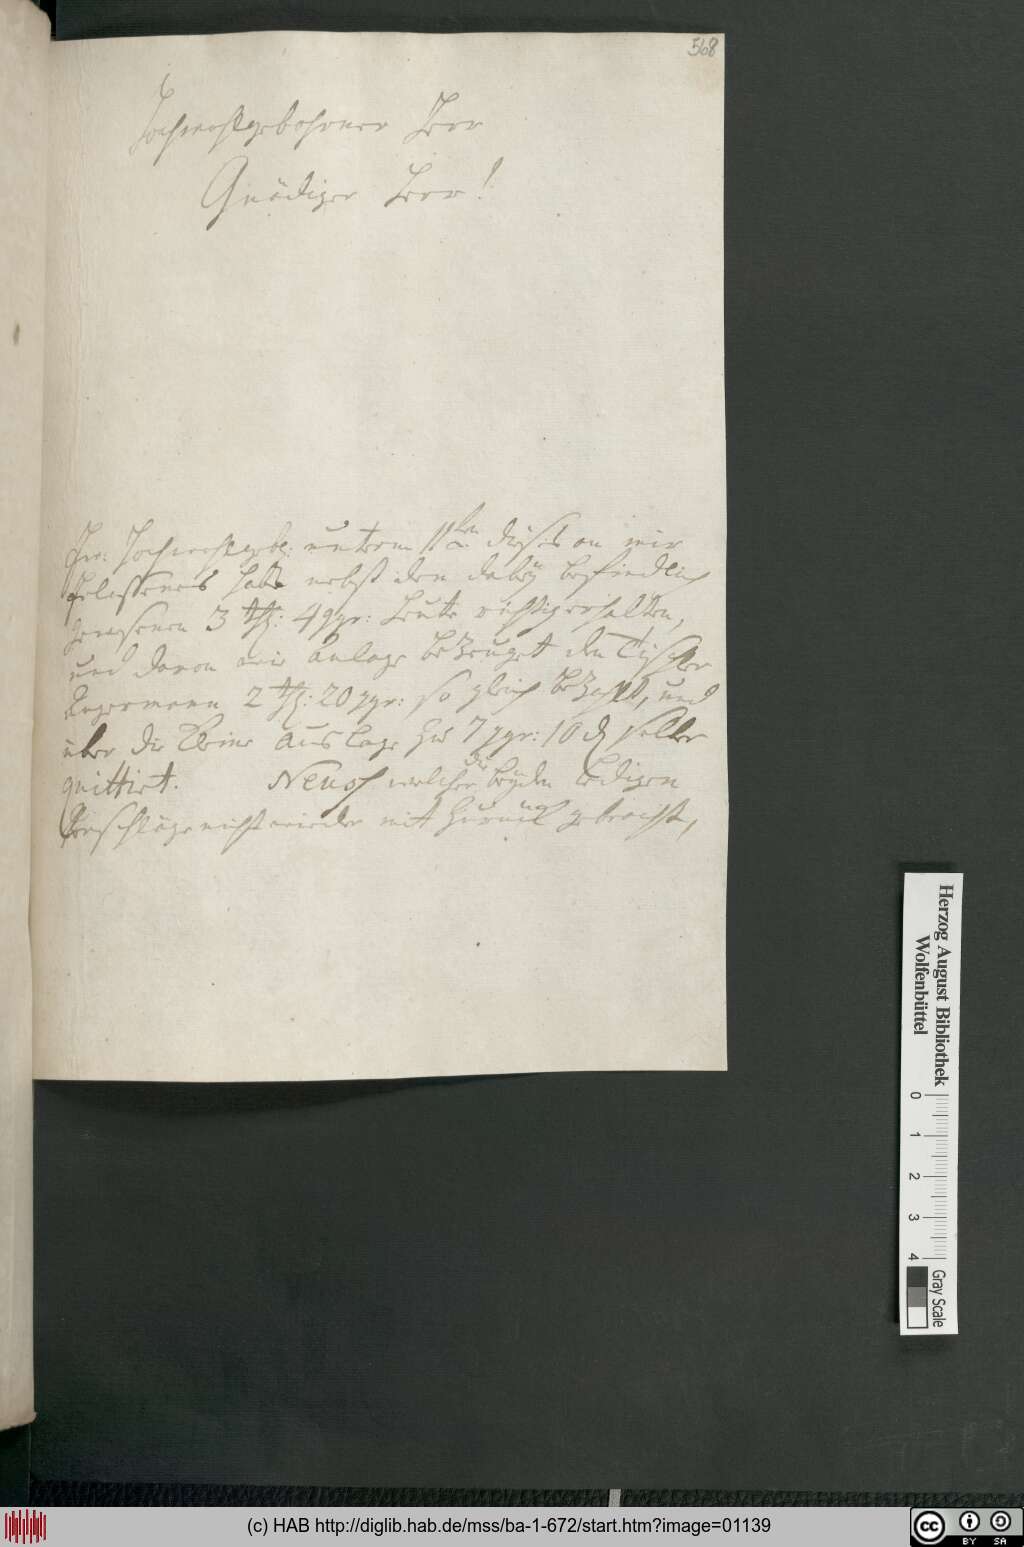 568
Hochwohlgebohrner Herr
Gnädiger Herr!
Ew: Hochwohlgeb: unterm 11ten dieses an mir
Erlaßenes habe nebst den dabeÿ befindlich
gewesenen 3 thl: 4 ggr: heute richtig erhalten,
und davon wie anlage bezeuget den Tischler
Angermann 2 thl: 20 ggr: so gleich bezahlt, und
über die kleine auslage zu 7 ggr: 10 d selber
quittirt. Neuof welcher die beÿden ledigen
Verschläge nicht wieder mit zurück gebracht,
Herzog August Bibliothek
Wolfenbüttel
0 1 2 3 4
Gray Scale
(c) HAB http://diglib.hab.de/mss/ba-1-672/start.htm?image=01139
cc BY SA